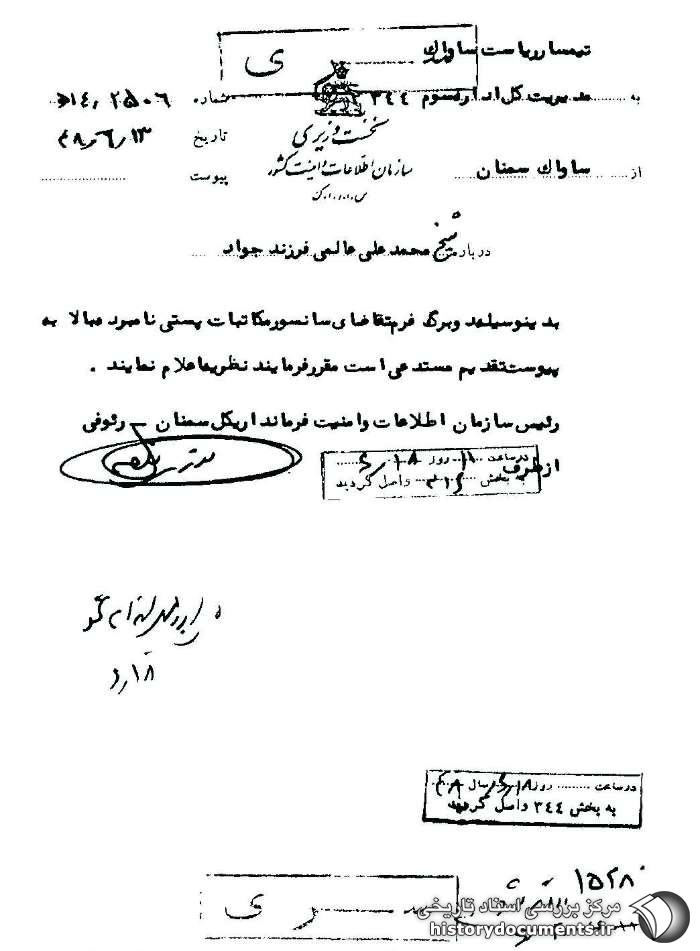 تیمسار ریاست ساواک
به مدیریت کل اداره سوم ۳۴۴
شماره ۲۵۰۶/ه۱۴
نخست وزیری
تاریخ ۴۸/۶/۱۳
سازمان اطلاعات و امنیت کشور
س.ا.و.ا.ک
از ساواک سمنان
پیوست
درباره شیخ محمد علی عالمی فرزند جواد
بدینوسیله دو برگ فرم تقاضای سانسور مکاتبات پستی نامبرده بالا به
پیوست تقدیم مستدعی است مقرر فرمایند نظریه اعلام نمایند .
رئیس سازمان اطلاعات و امنیت فرمانداریکل سمنان - رئوفی
از طرف
در ساعت ۱۱ روز ۶/۱۸
به بخش واصل گردید
۶/۱۸
در ساعت روز ۶/۱۸ سال ۴۸
به بخش ۳۴۴ واصل گردید
سری
مرکز بررسی اسناد تاریخی
historydocuments.ir